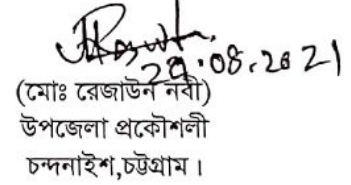 29.08.2021
(মোঃ রেজাউন নবী)
উপজেলা প্রকৌশলী
চন্দনাইশ,চট্টগ্রাম।